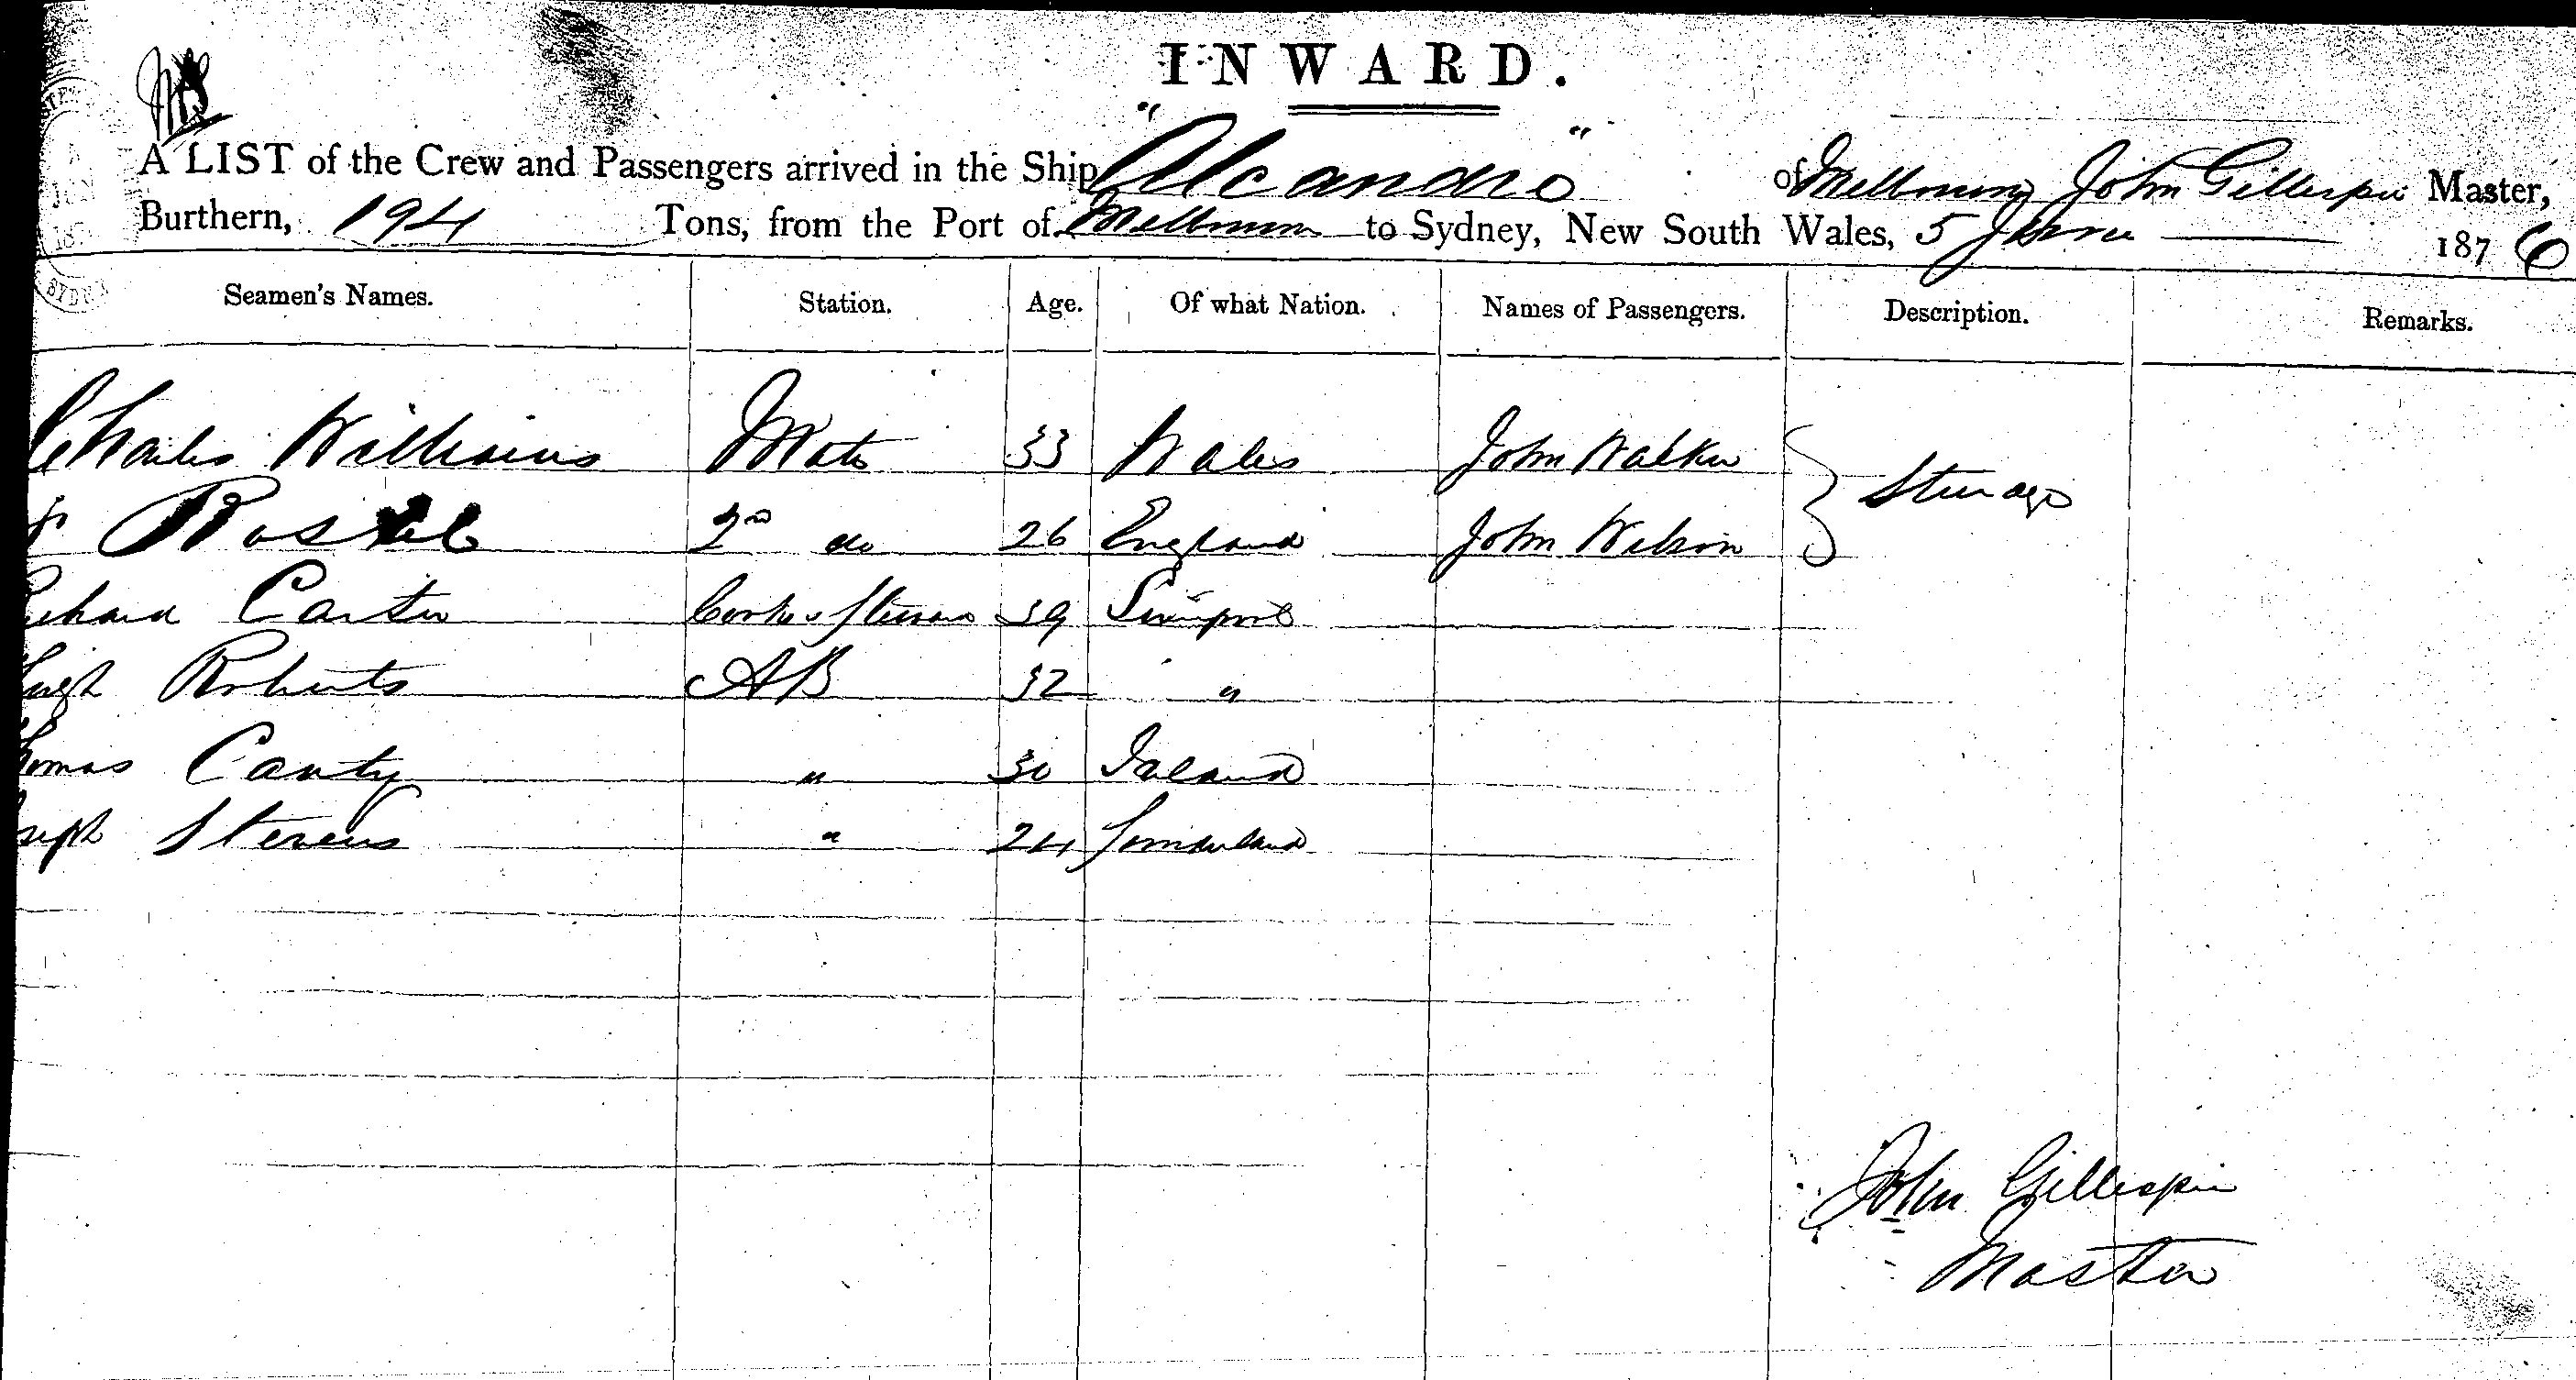 INWARD.
A LIST of the Crew and Passengers arrived in the Ship "Alcandro" of Melbourne John Gillespie Master,
Burthern, 194 Tons, from the Port of Melbourne to Sydney, New South Wales, 5 June 1876
Seamen's Names. Station. Age. Of what Nation. Names of Passengers. Description. Remarks.
Charles Williams Mate 33 Wales John Walker Steerage
2nd do 26 England John Wilson
Richard Carter Cook & Steward 39 Liverpool
Hugh Roberts AB 32 "
Thomas Canty " 30 Ireland
Joseph Stevens " 24 Sunderland
John Gillespie
Master